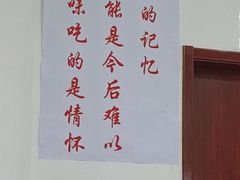 味吃的是情怀
能是今后难以
的记忆